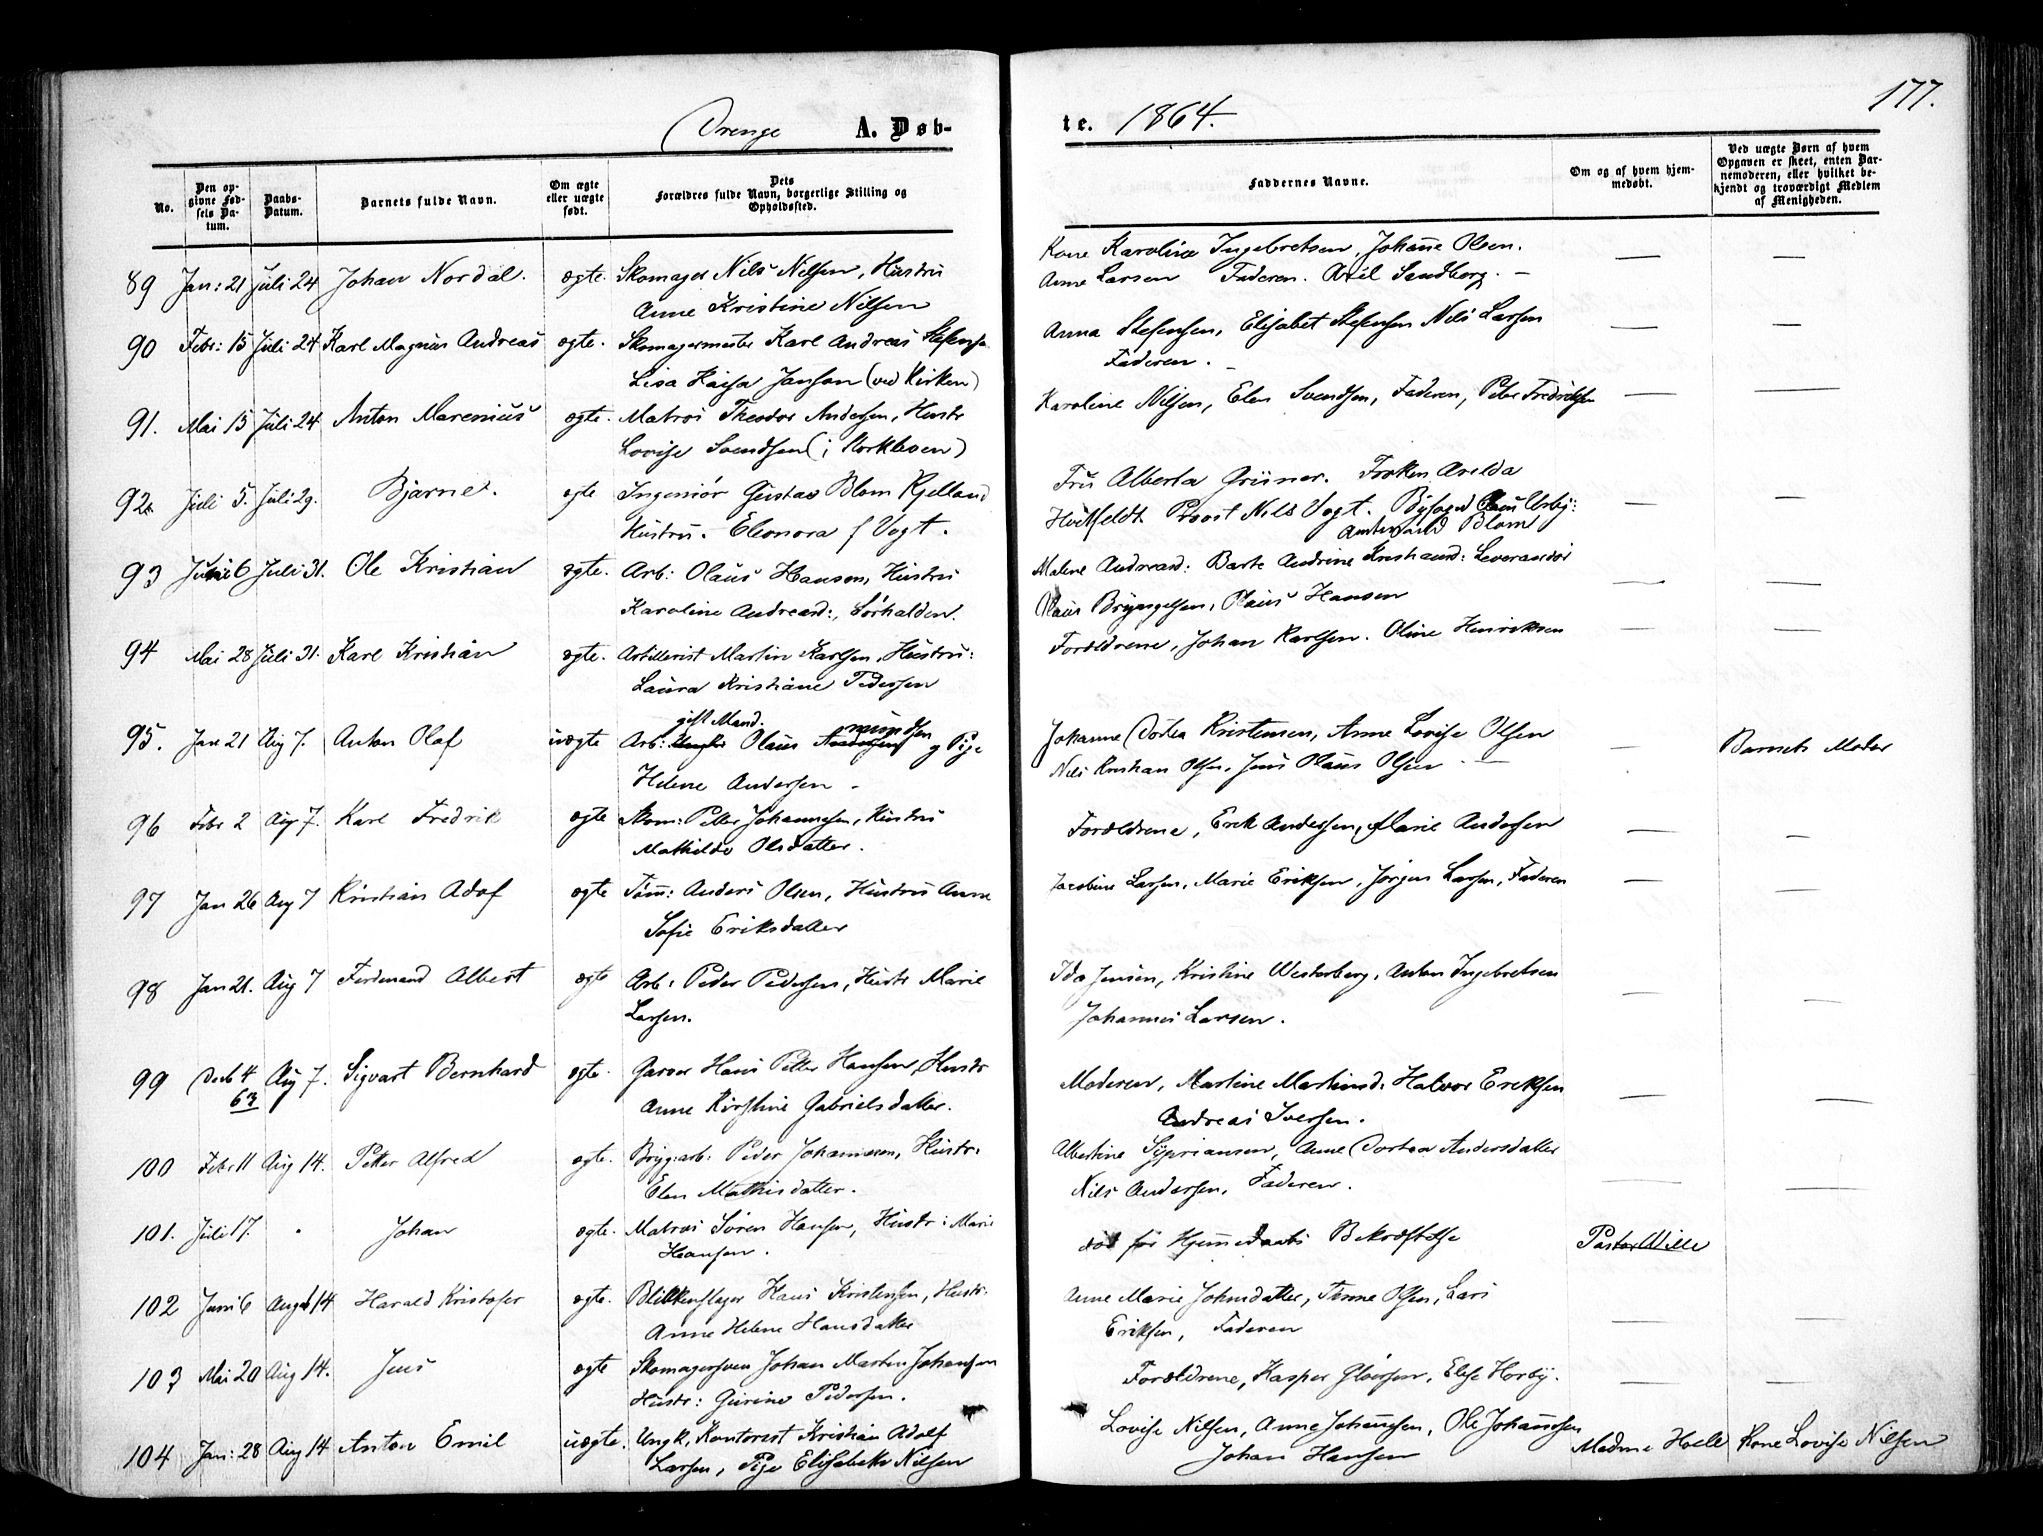 177.
Drenge A. Døb-
te. 1864.
No.
Den op-
givne Fød-
sels Da-
tum.
Daabs-
Datum.
Barnets fulde Navn.
Om ægte
eller uægte
født.
Dets
Forældres fulde Navn, borgerlige Stilling og
Opholdssted.
Faddernes Navne.
Om og af hvem hjem-
medøbt.
Ved uægte Børn af hvem
Opgaven er skeet, enten Bar-
nemoderen, eller hvilket be-
kjendt og troværdigt Medlem
af Menigheden.
89 Jan: 21 Juli 24 Johan Nordal. ægte. Skomager Nils Nilsen, Hustru
Anne Kristine Nilsen
Kone Karolina Ingebretsen, Johanne Olsen.
Anne Larsen Faderen. Axel Sandberg. —
90 Febr: 15 Juli 24 Karl Magnus Andreas ægte. Skomagermester Karl Andreas Stefensen
Lisa Kaisa Janson (ved Kirken)
Anna Stefensen, Elisabet Stefensen Nils Larsen
Faderen.
91. Mai 15 Juli 24 Anton Marenius ægte. Matros Theodor Andersen, Hustr
Lovise Svendsen (i Korkleven)
Karoline Nilsen, Elen Svendsen, Faderen, Peter Fredriksen
92. Juli 5. Juli 29. Bjarne. ægte Ingeniør Gustav Blom Kjelland
Hustru. Eleonora f Vogt.
Fru Alberta Grüner. Frøken Arilda
Huitfeldt Provst Nils Vogt. Byfoged Claus Urbÿ:
Amtmand Blom
93 Juni 6 Juli 31. Ole Kristian ægte. Arb: Olaus Hansen, Hustru
Karoline Andreasd:, Sørhalden.
Malene Andreasd: Barte Andrine Kristiansd: Leverandør
Olaus Bryngelsen, Olaus Hansen
94 Mai 28 Juli 31. Karl Kristian ægte. Artillerist Martin Karlsen, Hustru:
Laura Kristiane Pedersen
Forældrene, Johan Karlsen. Oline Henriksen
95. Jan 21 Aug 7. Anton Olaf uægte Arb: gift Mand. Olaus og Pige
Helene Andersen
Johanne Dortea Kristensen, Anne Lovise Olsen
Nils Kristian Olsen, Jens Olaus Olsen
Barnets Moder
96 Febr 2 Aug 7. Karl Fredrik ægte Skom: Petter Johannesen, Hustru
Mathilde Olsdatter.
Forældrene, Erik Andersen, Marie Andersen
97 Jan 26 Aug 7 Kristian Adof ægte Tøm: Anders Olsen, Hustru Anne
Sofie Eriksdatter
Jacobine Larsen, Marie Eriksen, Jørgen Larsen, Faderen
98 Jan 21. Aug 7 Ferdinand Albert ægte Arb: Peder Pedersen, Hustr Marie
Larsen.
Ida Jensen, Kristine Westerberg, Anton Ingebretsen
Johannes Larsen.
99 Decb 4 Aug 7. Sigvart Bernhard ægte. Garver Hans Petter Hansen, Hustr
63
Anne Kirstine Gabrielsdatter.
Moderen, Martine Martinsd: Halvor Eriksen
Andreas Iversen.
100 Febr 11 Aug 14. Petter Alfred ægte. Brÿg:arb: Peder Johannesen, Hustr:
Elen Mathisdatter.
Albertine Sÿpriansen, Anne Dortea Andersdatter
Nils Andersen, Faderen.
101. Juli 17. Johan ægte. Matros Søren Hansen, Hustr: Marie
Hansen.
død før Hjemmedaabs Bekræftelse
Pastor Wille
102 Juni 6 August 14 Harald Kristofer ægte. Blikkenslager Hans Kristensen, Hustr:
Anne Helene Hansdatter
Anne Marie Johnsdatter, Tinne Olsen, Lars
Eriksen, Faderen
103 Mai 20 Aug 14. Jens ægte Skomagersven Johan Martin Johansen
Hustr: Gurine Pedersen.
Forældrene, Kasper Gløersen, Elise Horbÿ.
104 Jan: 28 Aug 14 Anton Emil uægte. Ungk, Kontorist Kristian Adolf
Larsen, Pige Elisabeth Nilsen
Lovise Nilsen, Anne Johannesen, Ole Johannesen
Johan Hansen
Madme Hoell Kone Lovise Nilsen